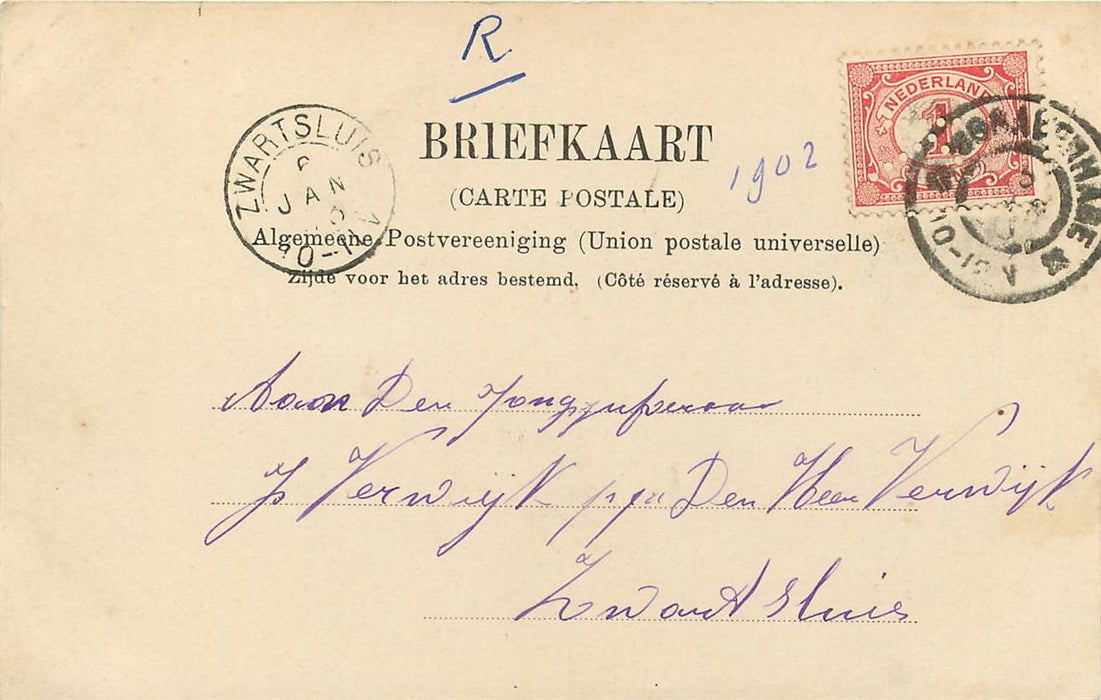 R
NEDERLAND
1
ZWARTSLUIS
6
JAN
10-11V
BRIEFKAART
1902
(CARTE POSTALE)
Algemeene Postvereeniging (Union postale universelle)
Zijde voor het adres bestemd. (Côté réservé à l'adresse).
Aan Den
Verwijk p/a Den Heer Verwijk
Zwartsluis